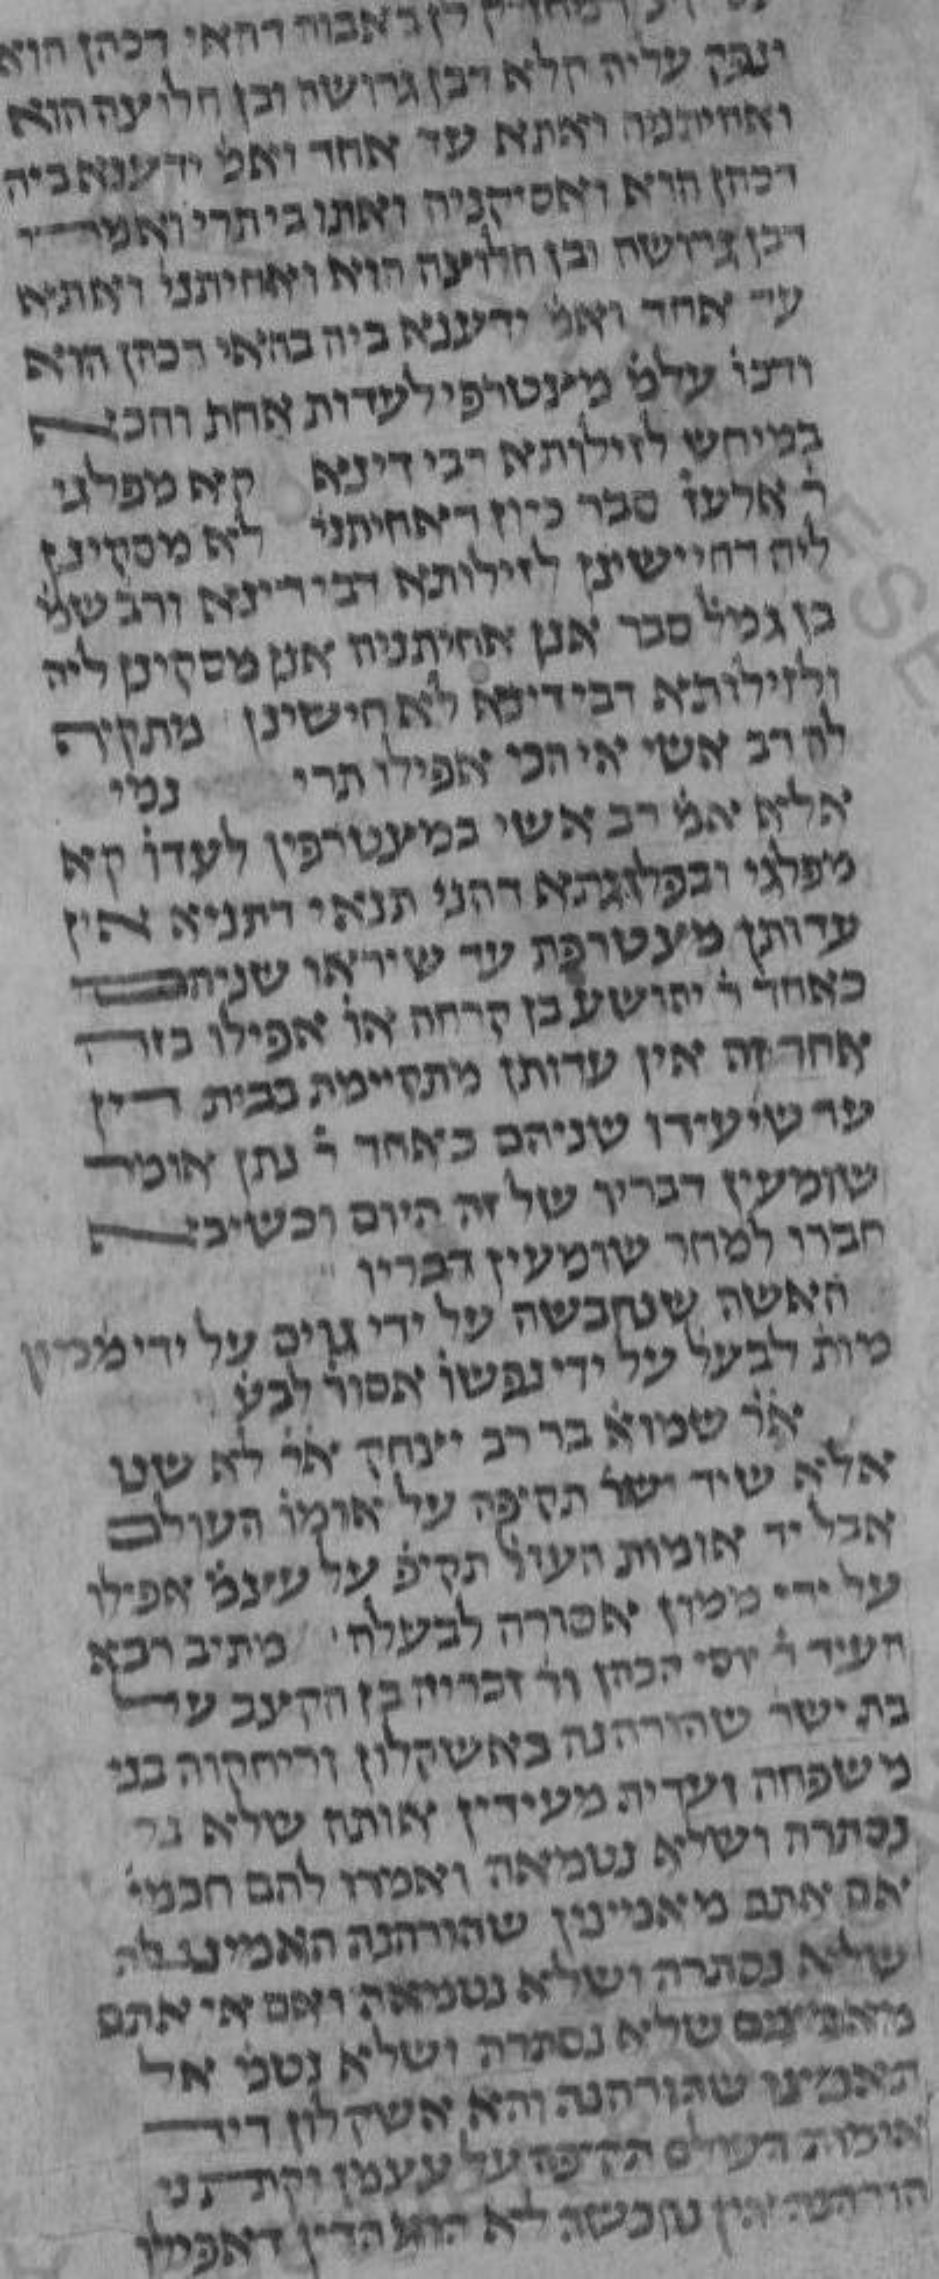 דמחזיק לן באבוה דהאי דכהן הוא
ונפק עליה קלא דבן גרושה ובן חלוצה הוא
ואחיתנה ואתא עד אחד ואמ ידענא ביה
דכהן הוא ואסיקניה ואתו בי תרי ואמרי
דבן גרושה ובן חלוצה הוא ואחיתני ואתא
עד אחד ואמ ידענא ביה בהאי דכהן הוא
ודכו עלמ מיצטרפי לעדות אחת והכא
במיחש לזילותא דבי דינא קא מפלגי
ר אלעז סבר כיון דאחיתני לא מסקינן
ליה דחיישינן לזילותא דבי דינא ורב שמ
בן גמל סבר אנן אחיתניה אנן מסקינן ליה
ולזילותא דבי דינא לא חישינן מתקיף
לה רב אשי אי הכי אפילו תרי נמי
אלא אמ רב אשי במצטרפין לעדו קא
מפלגי ובפלוגתא דהני תנאי דתניא אין
עדותן מצטרפת עד שיראו שניהם
כאחד ר יהושע בן קרחה או אפילו בזה
אחר זה אין עדותן מתקיימת בבית דין
עד שיעידו שניהם כאחד ר נתן אומר
שומעין דבריו של זה היום וכשיבא
חברו למחר שומעין דבריו
האשה שנחבשה על ידי גוים על ידי ממון
מות לבעל על ידי נפשו אסור לבע
אר שמוא בר רב יצחק אר לא שנו
אלא שיד ישר תקיפה על אומו העולם
אבל יד אומות העול תקיפ על עצמ אפילו
על ידי ממון אסורה לבעלה מתיב רבא
העיד ר יוסי הכהן ור זכריה בן הקצב על
בת ישר שהורהנה באשקלון וריחקוה בני
משפחה ועדיה מעידין אותה שלא
נסתרה ושלא נטמאה ואמרו להם חכמי
אם אתם מיאמינין שהורהנה האמינו
שלא נסתרה ושלא נטמאה ואם אי אתם
מאמינם שלא נסתרה ושלא נטמ אל
תאמינו שהורהנה והא אשקלון דיד
אומות העולם תקיפה על עצמן וקתני
הורהנה אין נחבשה לא הוא הדין דאפילו